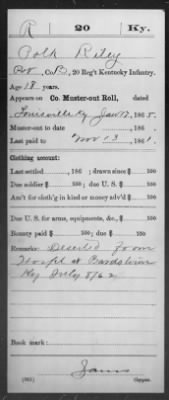 R | 20 | Ky.
Polk Riley
Co. B, 20 Reg't Kentucky Infantry.
Age 18 years.
Appears on Co. Muster-out Roll, dated
Louisville Ky Jan 17, 1865.
Muster-out to date 186 .
Last paid to Nov 13, 1861.
Clothing account:
Last settled , 186 ; drawn since $ 100
Due soldier $ 100; due U. S. $ 100
Am't for cloth'g in kind or money adv'd $ 100
Due U. S. for arms, equipments, &c., $ 100
Bounty paid $ 100; due $ 100
Remarks: Deserted from
Hospt at Bardstown
Ky July 8/62
Book mark:
James
(861) Copyist.